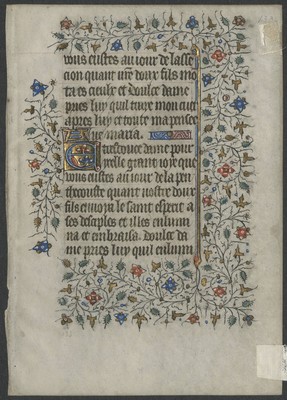 vous eustes au iour de lassen
cion quant vr̄e doux fils mo
ta es cieulx et doulce dame
pries luy quil tuire mon cuer
apres luy et toute ma pensee
Aue maria.
Et doulce dame pour
celle grant ioye que
vous eustes au iour de la pen
thecouste quant nostre doux
fils enuoya le saint esperit a
ses disciples et il les enlumi
na et embrasa. Doulce da
me pries luy quil enlumi